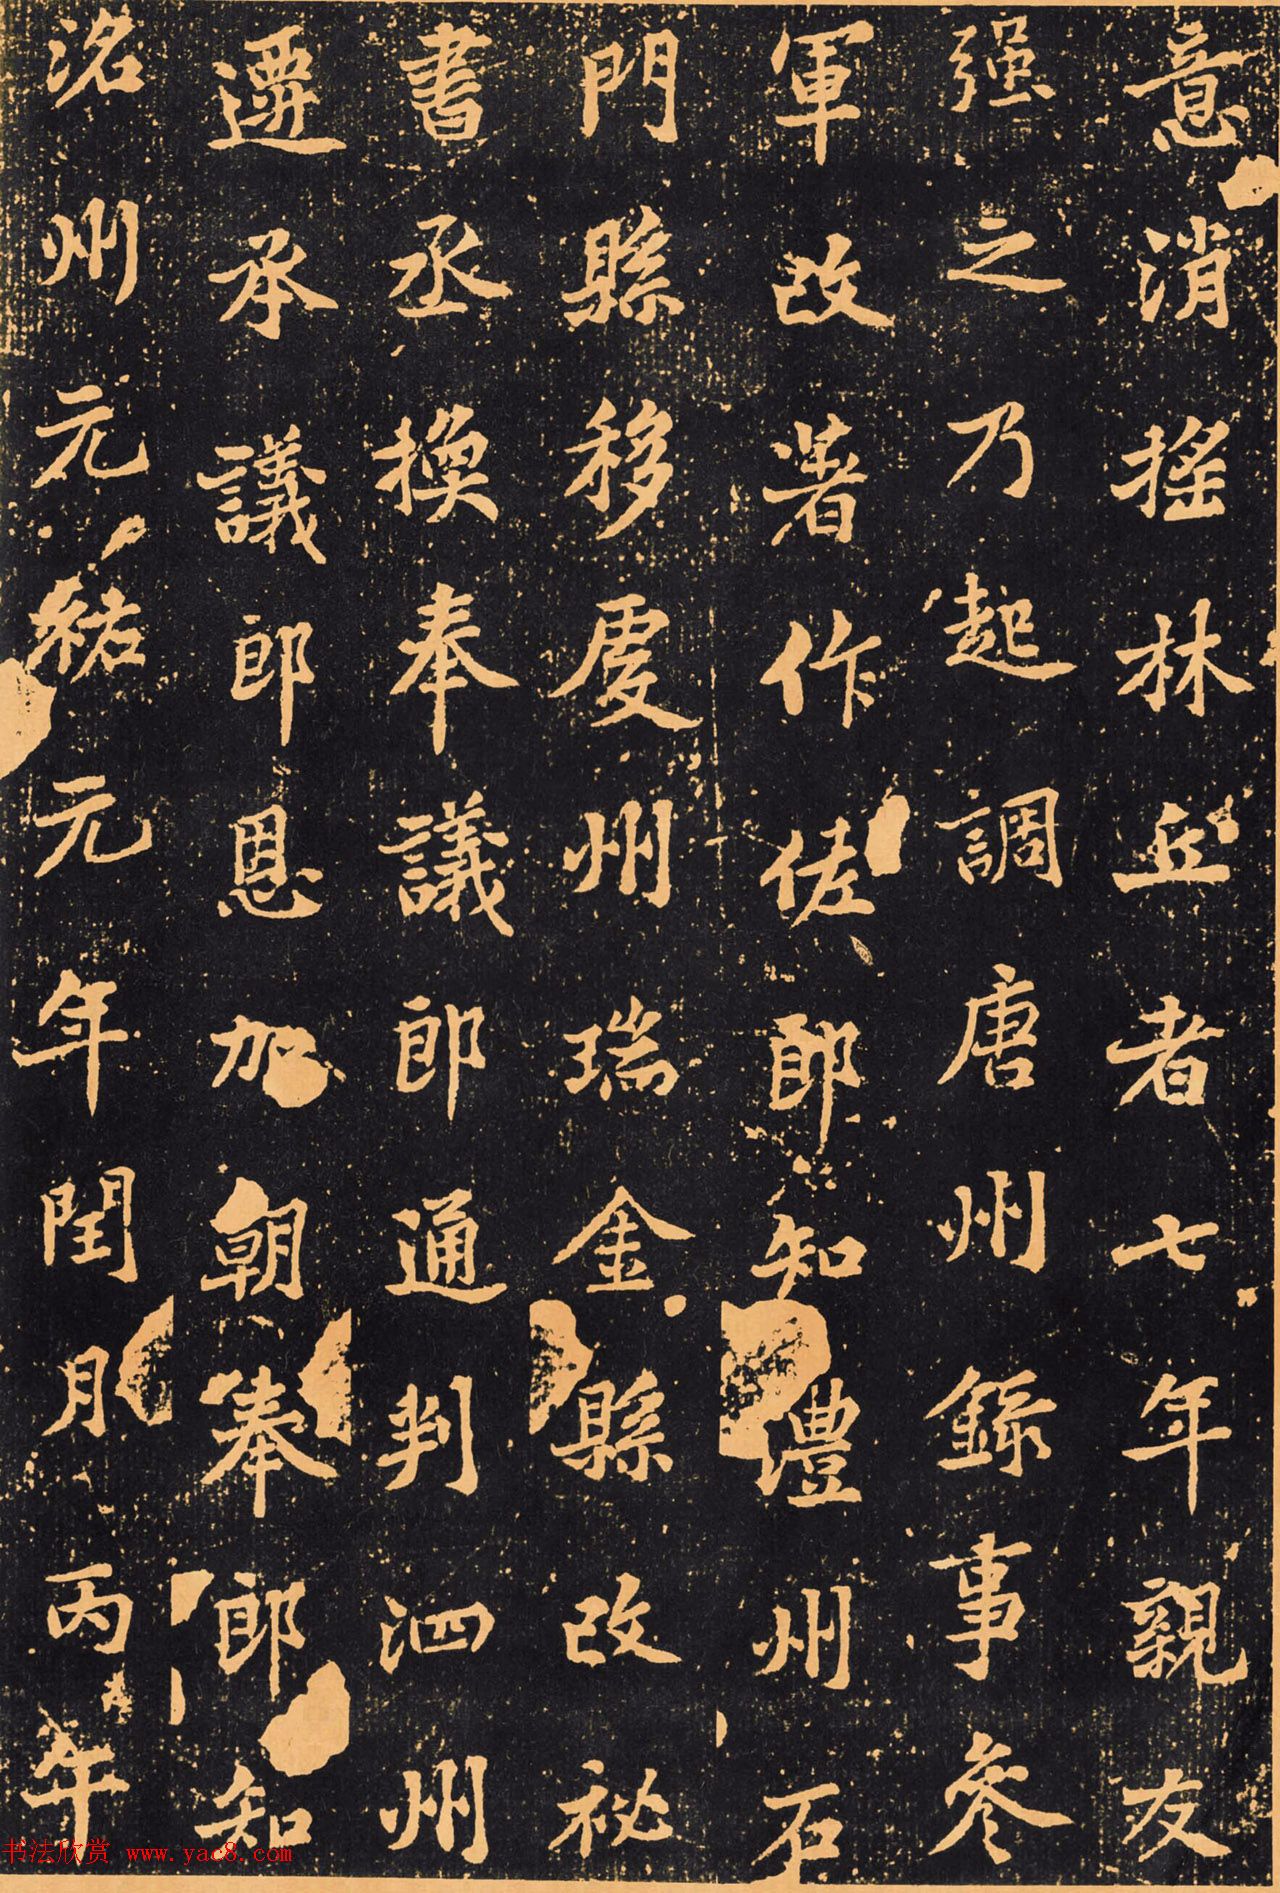 意消搖林丘者七年親友
强之乃起調唐州錄事參
軍改著作佐郎知澧州石
門縣移虔州瑞金縣改祕
書丞換奉議郎通判泗州
遷承議郎恩加朝奉郎知
洺州元祐元年閏月丙午
书法欣赏 www.yac8.com